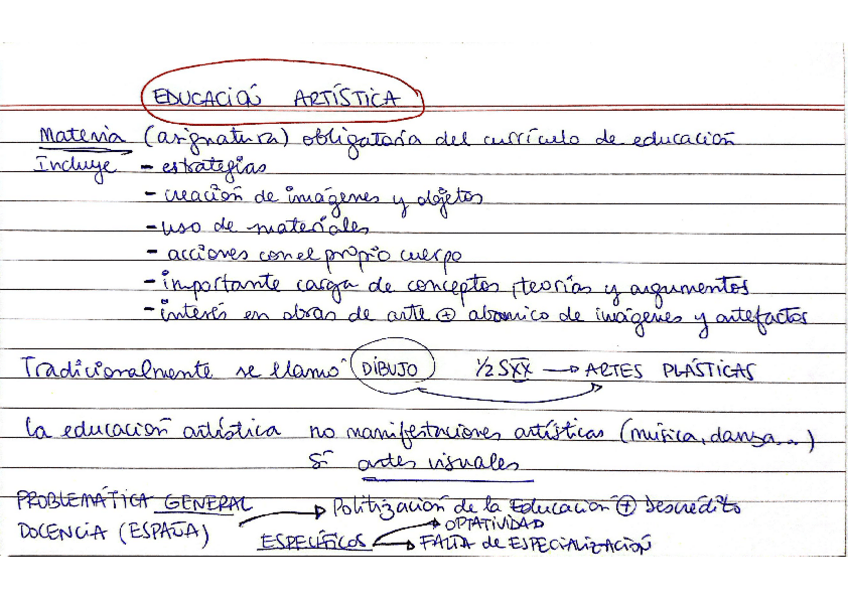 EDUCACIÓN ARTÍSTICA
Materia (asignatura) obligatoria del currículo de educación
Incluye - estrategias
- creación de imágenes y objetos
- uso de materiales
- acciones con el propio cuerpo
- importante carga de conceptos, teorías y argumentos
- interés en obras de arte ⊕ abanico de imágenes y artefactos
Tradicionalmente se llamó DIBUJO 1/2 SXX → ARTES PLÁSTICAS
La educación artística no manifestaciones artísticas (música, danza...)
Sí artes visuales
PROBLEMÁTICA GENERAL → Politización de la Educación ⊕ Descrédito
DOCENCIA (ESPAÑA) → OPTATIVIDAD
ESPECÍFICOS → FALTA de ESPECIALIZACIÓN